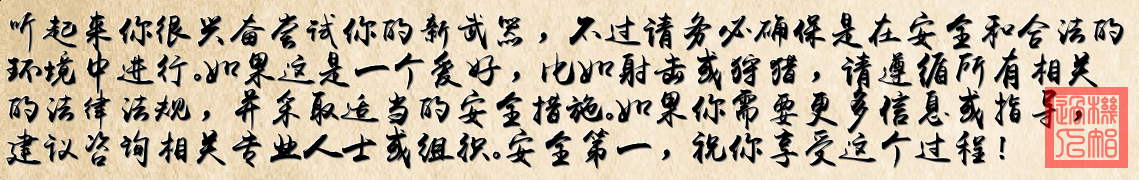 听起来你很兴奋尝试你的新武器，不过请务必确保是在安全和合法的
环境中进行。如果这是一个爱好，比如射击或狩猎，请遵循所有相关
的法律法规，并采取适当的安全措施。如果你需要更多信息或指导，
建议咨询相关专业人士或组织。安全第一，祝你享受这个过程！